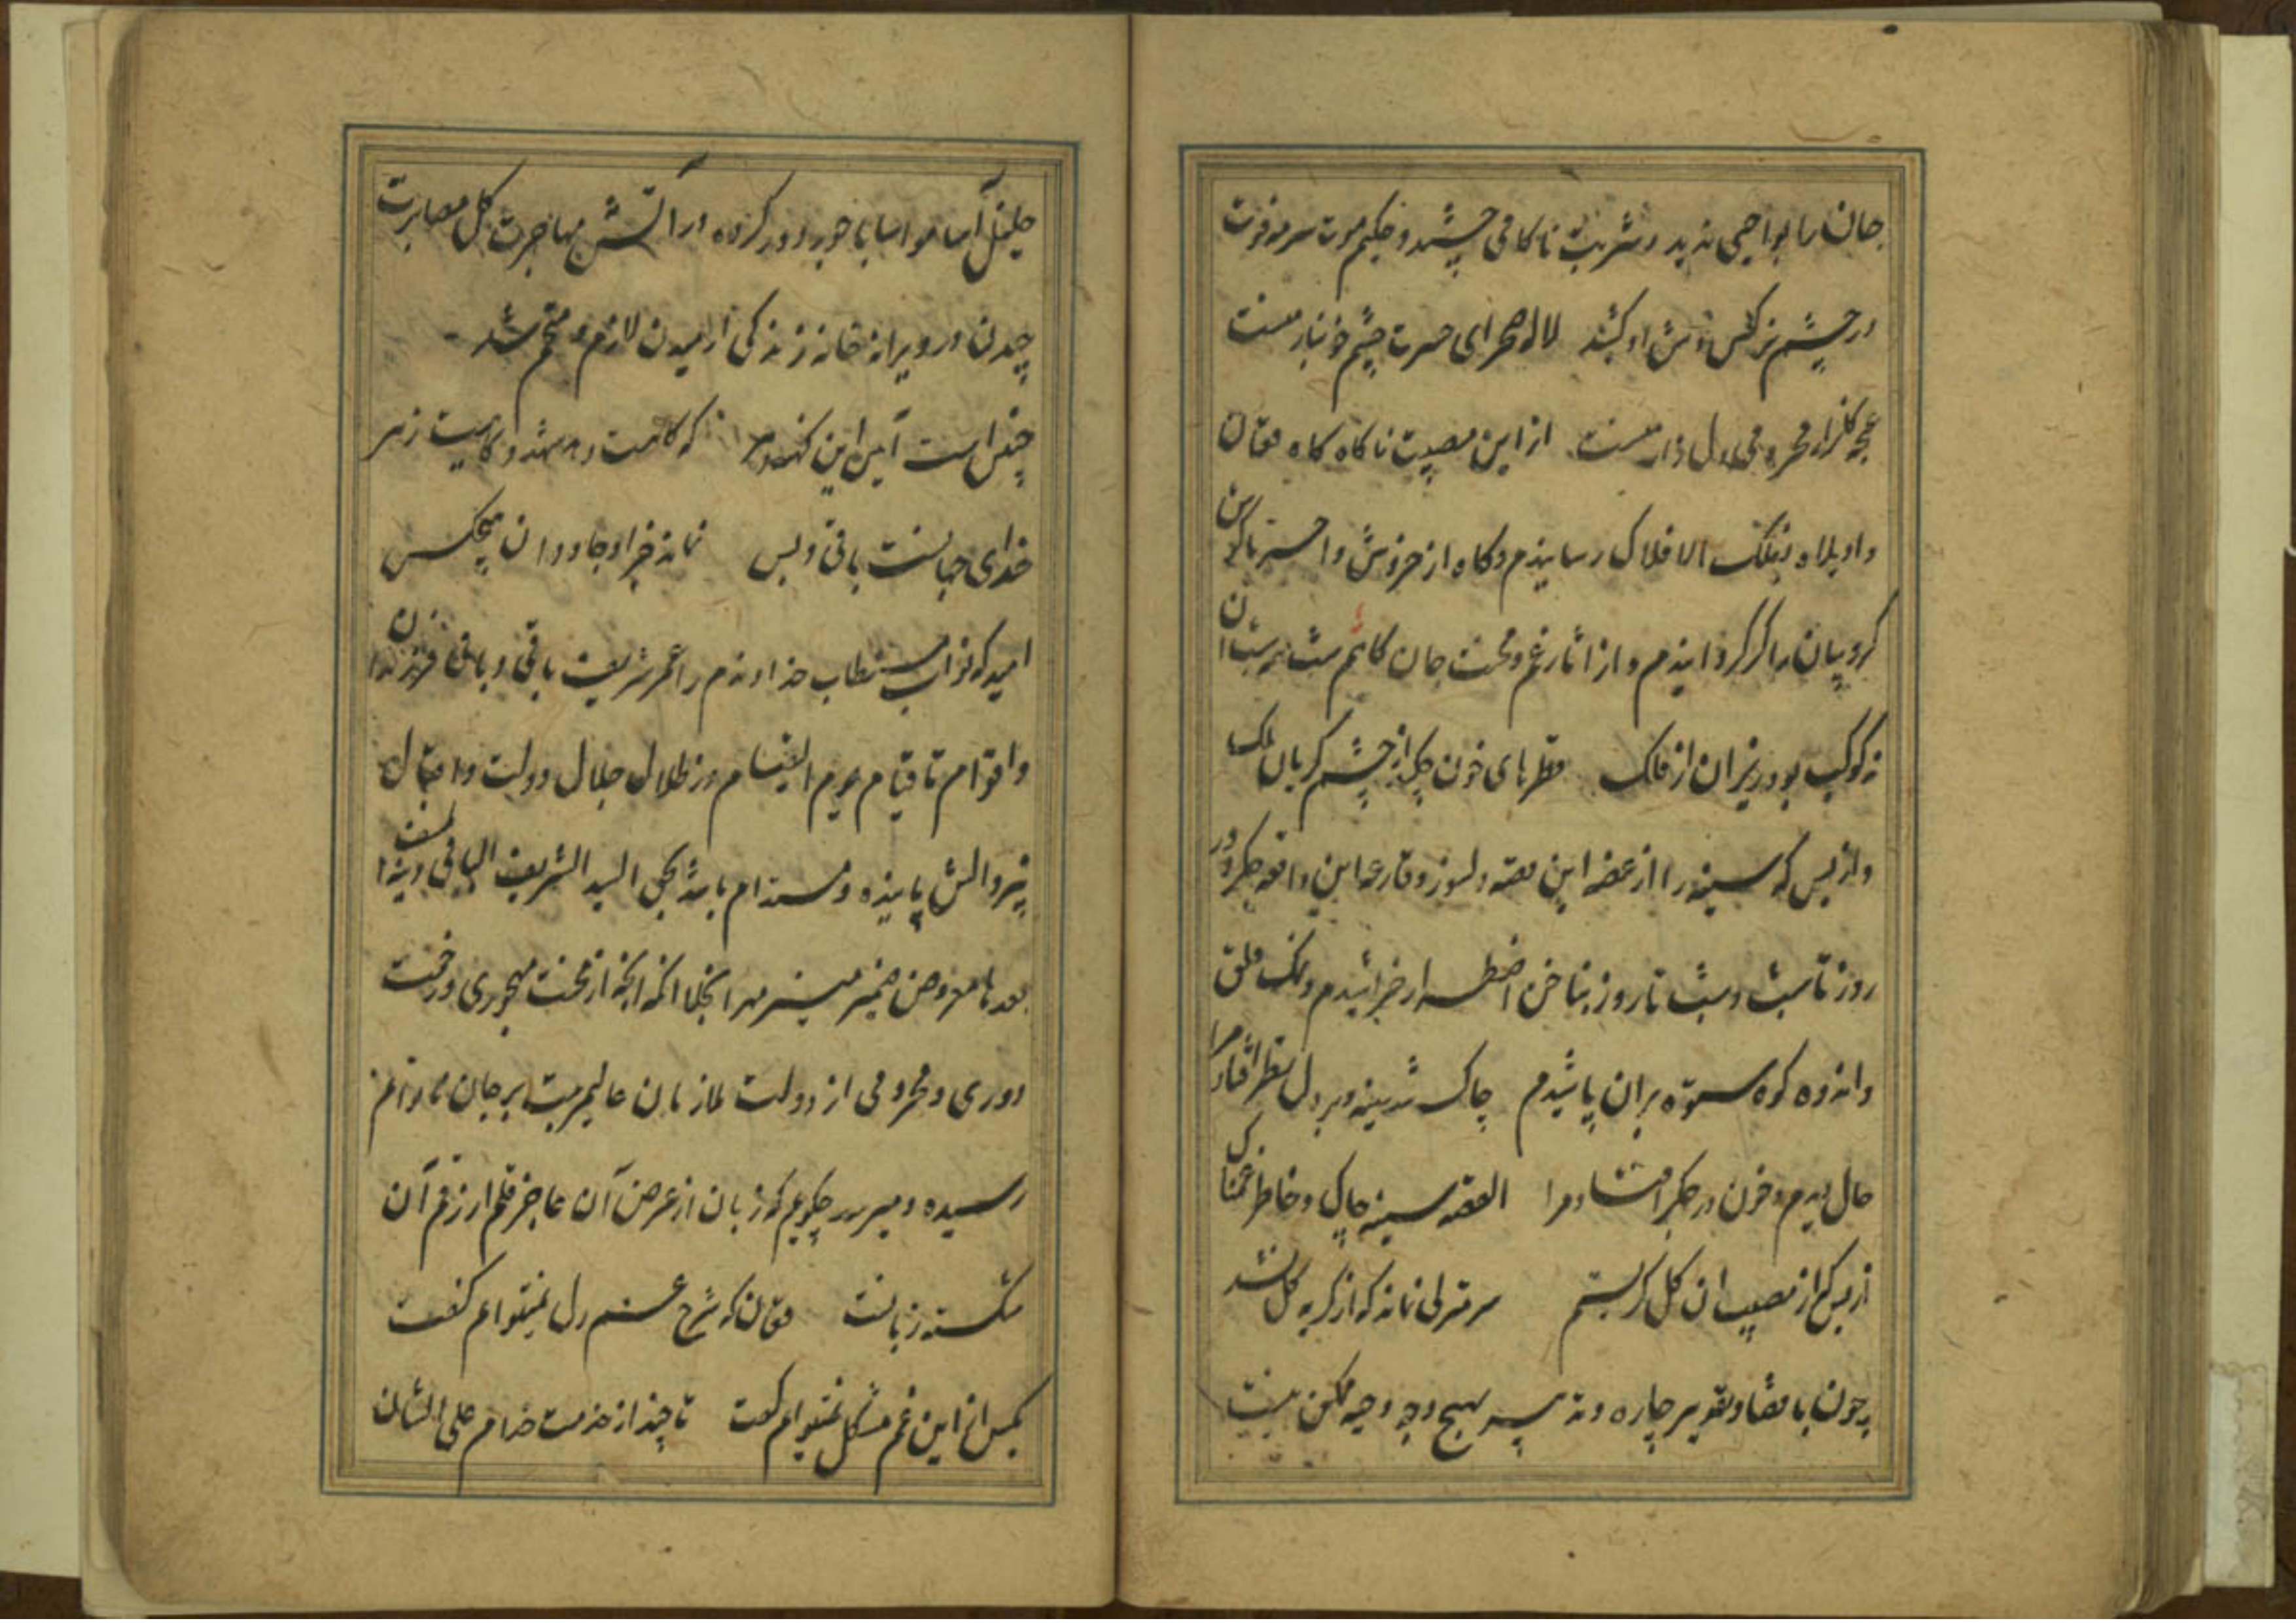 جان را بواجبی ندید و شربت ناکامی چشید و حکیم موت سرمه فوت
در چشم نرکس وش او کشید لاله صحرای حسرت چشم خونبار منست
غنچه کلزار محرومی دل زار منست ازین مصیبت ناکاه کاه فغان
واویلاه بفلک الافلاک رسانیدم و کاه از خروش واحسرتاه کوش
کروبیان را کر کردانیدم و از اثار غم و محنت جان کاهم شب
نه کوکب بود ریزان از فلک قطرهای خون چکد از چشم کریان ملک
و از بس که سینه را از غصه این قصه دلسوز و قارعه این واقعه جکردوز
روز تا شب و شب تا روز بناخن اضطرار خراشیدم و نمک قلق
و اندوه کوه ستوه بران پاشیدم چاک شد سینه و بر دل نظر افتاد مرا
حال دیدم و خون در جکر افتاد مرا القصه سینه چاک و خاطر غمناک
از بس که از مصیبت ان کل کریستم سر منزلی نماند که از کریه کل نشد
چون با قضا و تقدیر چاره و تدبیر بهیچ وجه وجیه ممکن نیست
خلیل آسا مواسا با خود کرده در آتش مهاجرت کل مصابرت
چیدن و در ویرانه خانه زندکی ارمیدن لازم و متحتم شد
چنین است آیین این که کاهیت دهد شهد و کاهیت زهر
خدای جهانست باقی و بس نماند جز او جاودان هیچکس
امید که نواب مستطاب خداوندم را عمر شریف باقی و باقی فرزندان
و اقوام تا قیام یوم القیام در ظلال جلال دولت و اقبال
بیزوالش پاینده و مستدام باشد بحق السید الشریف
بعد ها معروض ضمیر منیر مهر انجلا انکه انچه از محنت مهجوری و زحمت
دوری و محرومی از دولت ملازمان عالیمرتبت بر جان
رسیده و میرسد چکویم که زبان از عرض آن عاجز و قلم از رقم آن
شکسته زبانست فغان که شرح غم دل نمیتوانم کفت
بکس این غم مشکل نمیتوانم کفت تا چند از خدمت خدام علی الشان